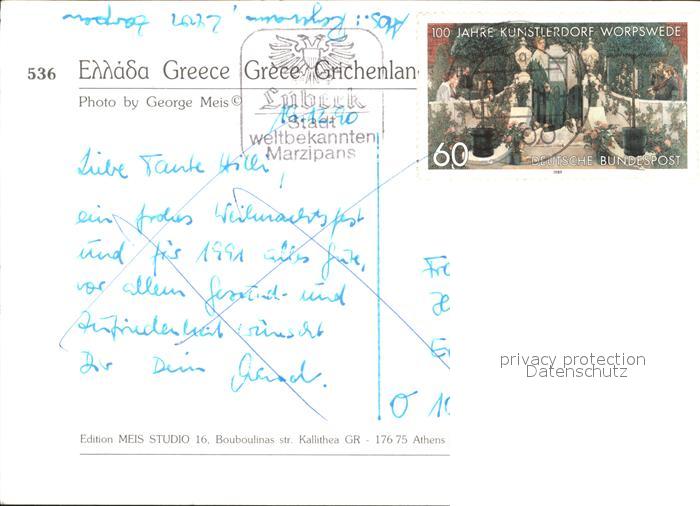 Abs.: 2401
536 Ελλάδα Greece Grèce Grichenlan
Photo by George Meis©
Lübeck
Stadt
weltbekannten
Marzipans
19.12.90
100 JAHRE KÜNSTLERDORF WORPSWEDE
60 DEUTSCHE BUNDESPOST
1989
Liebe Tante Hilli,
ein frohes Weihnachtsfest
und für 1991 alles Gute,
vor allem Gesund- und
Zufriedenheit wünscht
Dir Dein
Fre
O 10
privacy protection
Datenschutz
Edition MEIS STUDIO 16, Bouboulinas str. Kallithea GR - 176 75 Athens